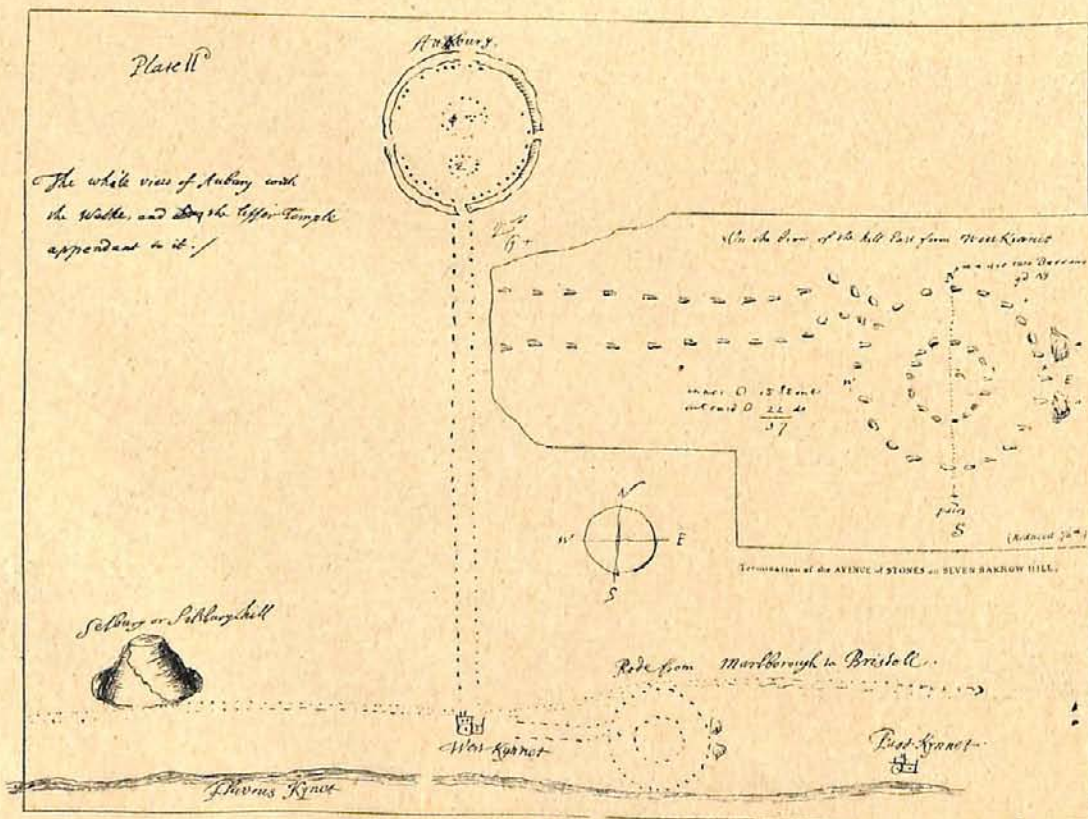 Plate IId
Aubury.
The whole view of Aubury with
the Walke, and the lesser Temple
appendant to it:/
On the brow of the hill East from West Kennet
two Barrows
N
W
E
S
inner O 15 stones
outward O 22 do
37
W
E
S
(Reduced
Termination of the AVENUE of STONES on SEVEN BARROW HILL.
Selbury or Silbury hill
Rode from Marlborough to Bristoll.
West Kynnet
East Kynnet
Fluvius Kynet